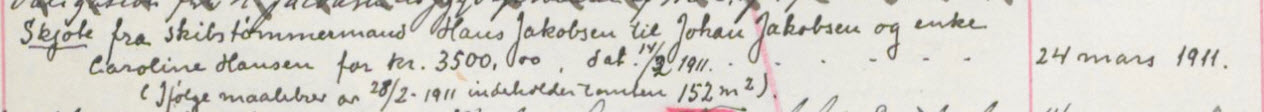 Skjøte fra skibstømmermand Hans Jakobsen til Johan Jakobsen og enke
Caroline Hansen for kr. 3500,00, dat. 14/3 1911. . . . . . . 24 mars 1911.
(Ifølge maalebrev av 28/2-1911 indeholder tomten 152 m²).